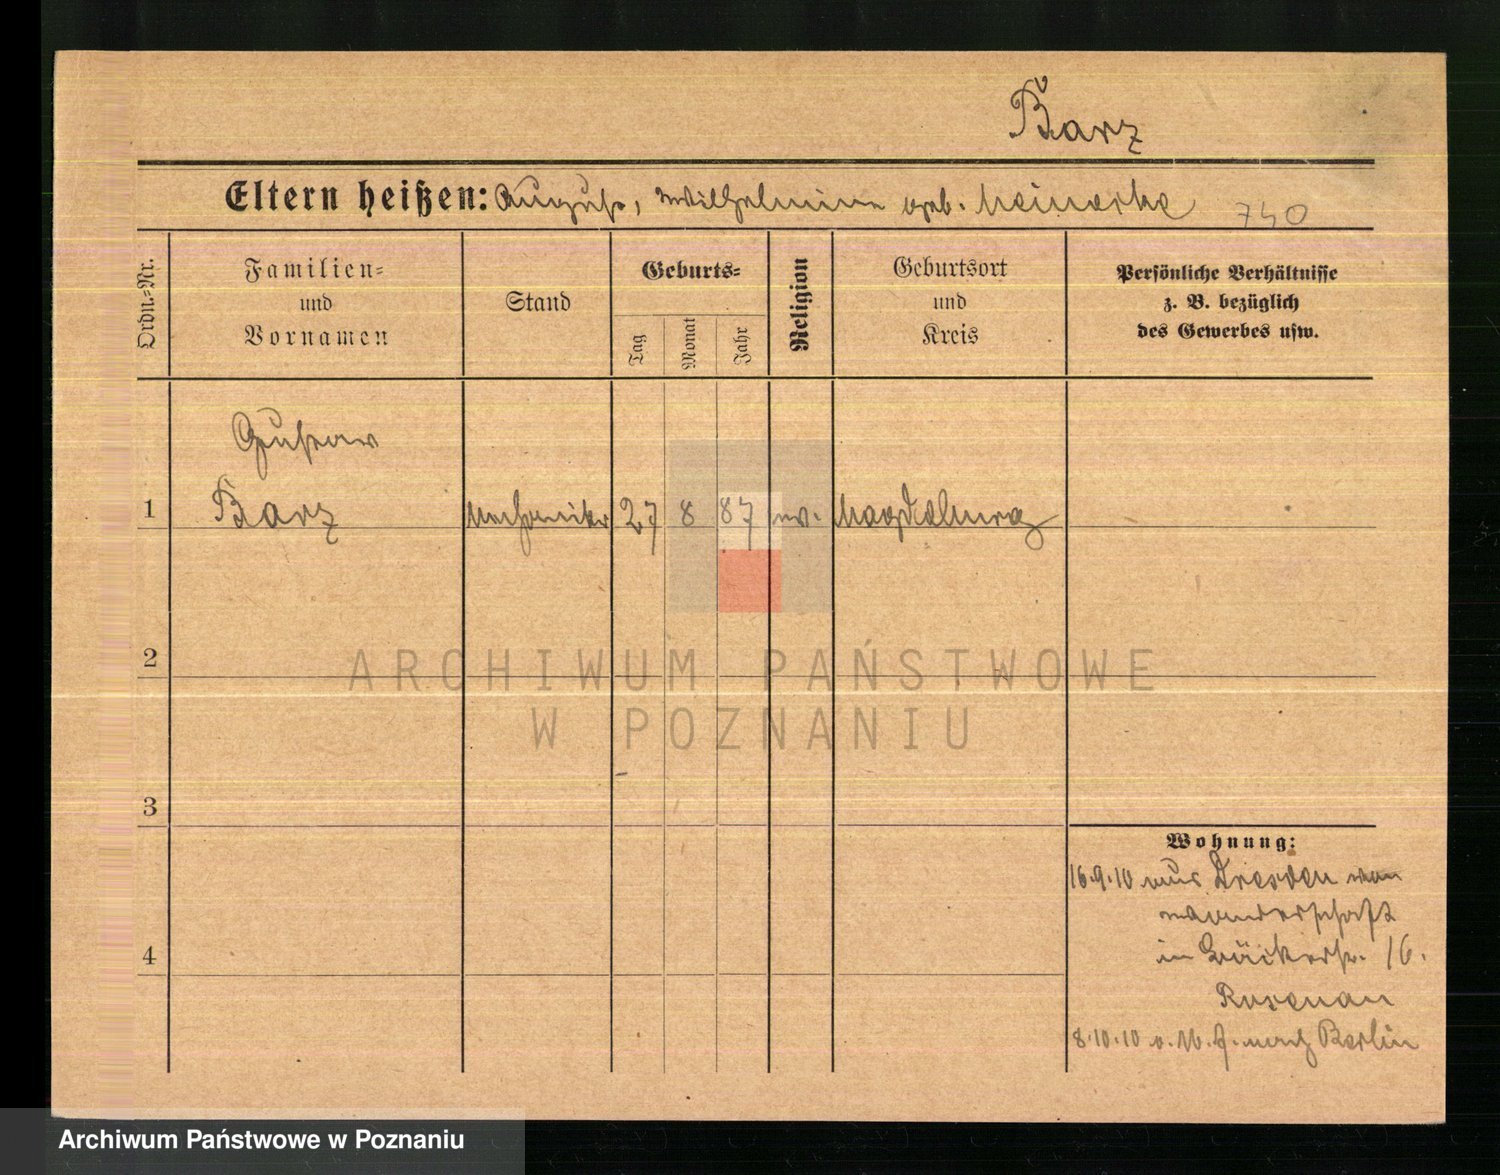 Barz
Eltern heißen: August, Wilhelmine geb. Meinecke 740
Ordn.-Nr.
Familien-
und
Vornamen
Stand
Geburts-
Tag
Monat
Jahr
Religion
Geburtsort
und
Kreis
Persönliche Verhältnisse
z. B. bezüglich
des Gewerbes usw.
Gustav
1 Barz Mechaniker 27 8 87 ev. Magdeburg
2
ARCHIWUM PAŃSTWOWE
W POZNANIU
3
Wohnung:
16.9.10 aus Dresden von
wanderschaft
4
in Bäckerstr. 16.
Rosenau
8.10.10 nach Berlin
Archiwum Państwowe w Poznaniu